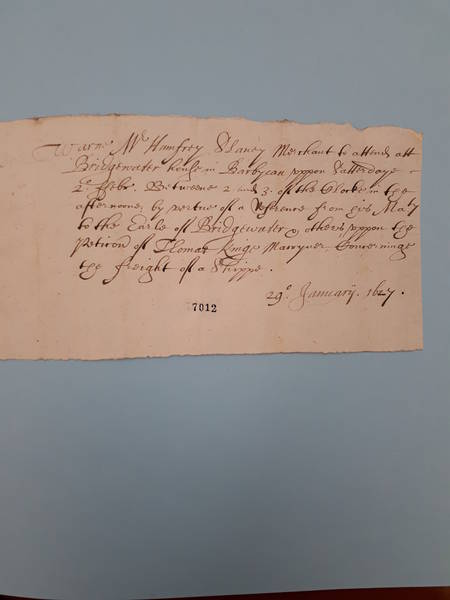 Warne Mr Humfrey Slaney Merchant to attend att
Bridgewater house in Barbycan uppon Satterdaye
2o. Febr. Betweene 2 and 3. of the Clocke in the
afternoone, by vertue of a Reference from his Maty
to the Earle of Bridgewater & others uppon the
Peticon of Thomas Kinge Marryner Concerninge
the freight of a Shippe.
29o. January. 1627.
7012